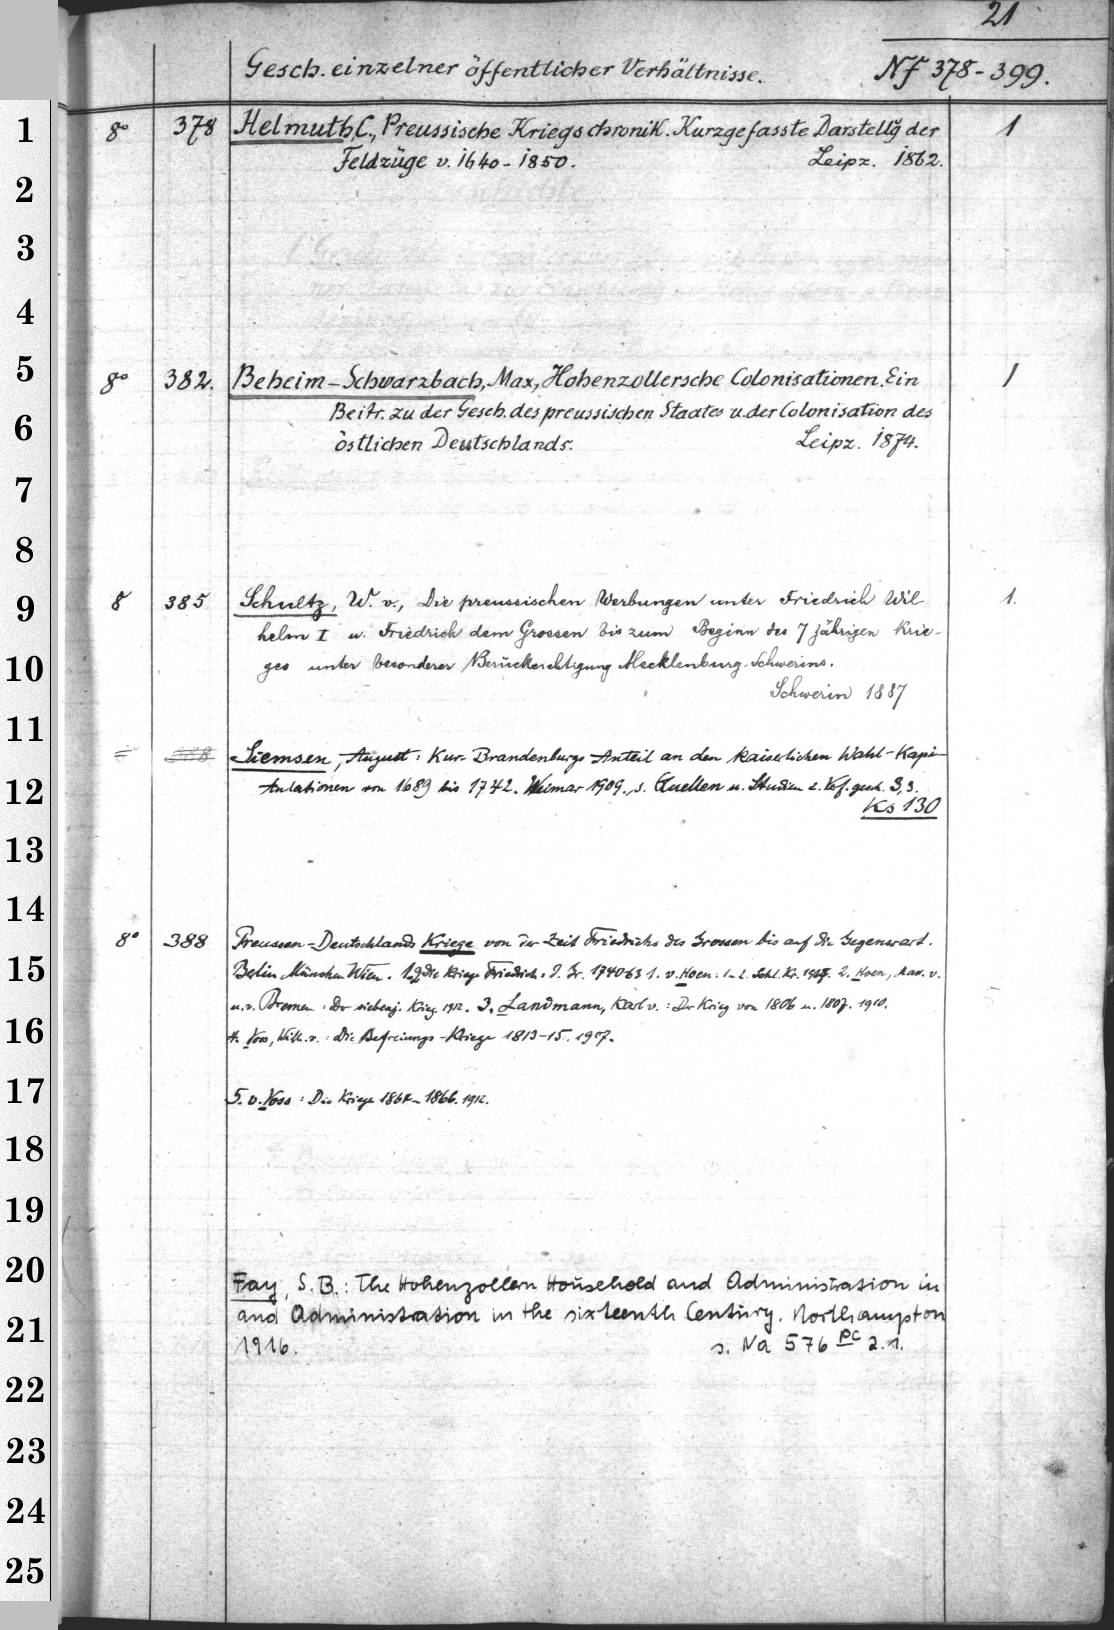 21
Gesch. einzelner öffentlicher Verhältnisse. NF 378-399.
1 8° 378 Helmuth, C., Preussische Kriegschronik. Kurzgefasste Darstellg der 1
Feldzüge v. 1640-1850. Leipz. 1862.
2
3
4
5 8° 382. Beheim-Schwarzbach, Max, Hohenzollersche Colonisationen. Ein 1
6 Beitr. zu der Gesch. des preussischen Staates u. der Colonisation des
östlichen Deutschlands. Leipz. 1874.
7
8
9 8 385 Schultz, W. v., Die preussischen Werbungen unter Friedrich Wil 1.
helm I u. Friedrich dem Grossen bis zum Beginn des 7 jährigen Krie-
10 ges unter besonderer Berücksichtigung Mecklenburg-Schwerins.
Schwerin 1887
11 388 Siemsen, August: Kur-Brandenburgs Anteil an den kaiserlichen Wahl-Kapi-
12 tulationen von 1689 bis 1742. Weimar 1909., s. Quellen u. Studien z. Verf. gesch. 3,3.
Ks 130
13
14
8° 388 Preussen-Deutschlands Kriege von der Zeit Friedrichs des Grossen bis auf die Gegenwart.
15 Berlin München Wien. Die Kriege Friedrichs d. Gr. 1740-63 1. v. Hoen: 1-2. Schl. Kr. 2. Hoen, Max. v.
u. v. Bremen: Der siebenj. Krieg 1912. 3. Landmann, Karl v.: Der Krieg von 1806 u. 1807. 1910.
16 4. Voss, Wilh. v.: Die Befreiungs-Kriege 1813-15. 1907.
17 5. v. Voss: Die Kriege 1864-1866. 1912.
18
19
20 Fay, S. B.: The Hohenzollern Household and Administration in
21 and Administration in the sixteenth Century. Northampton
1916. s. Na 576 pc 2.1.
22
23
24
25